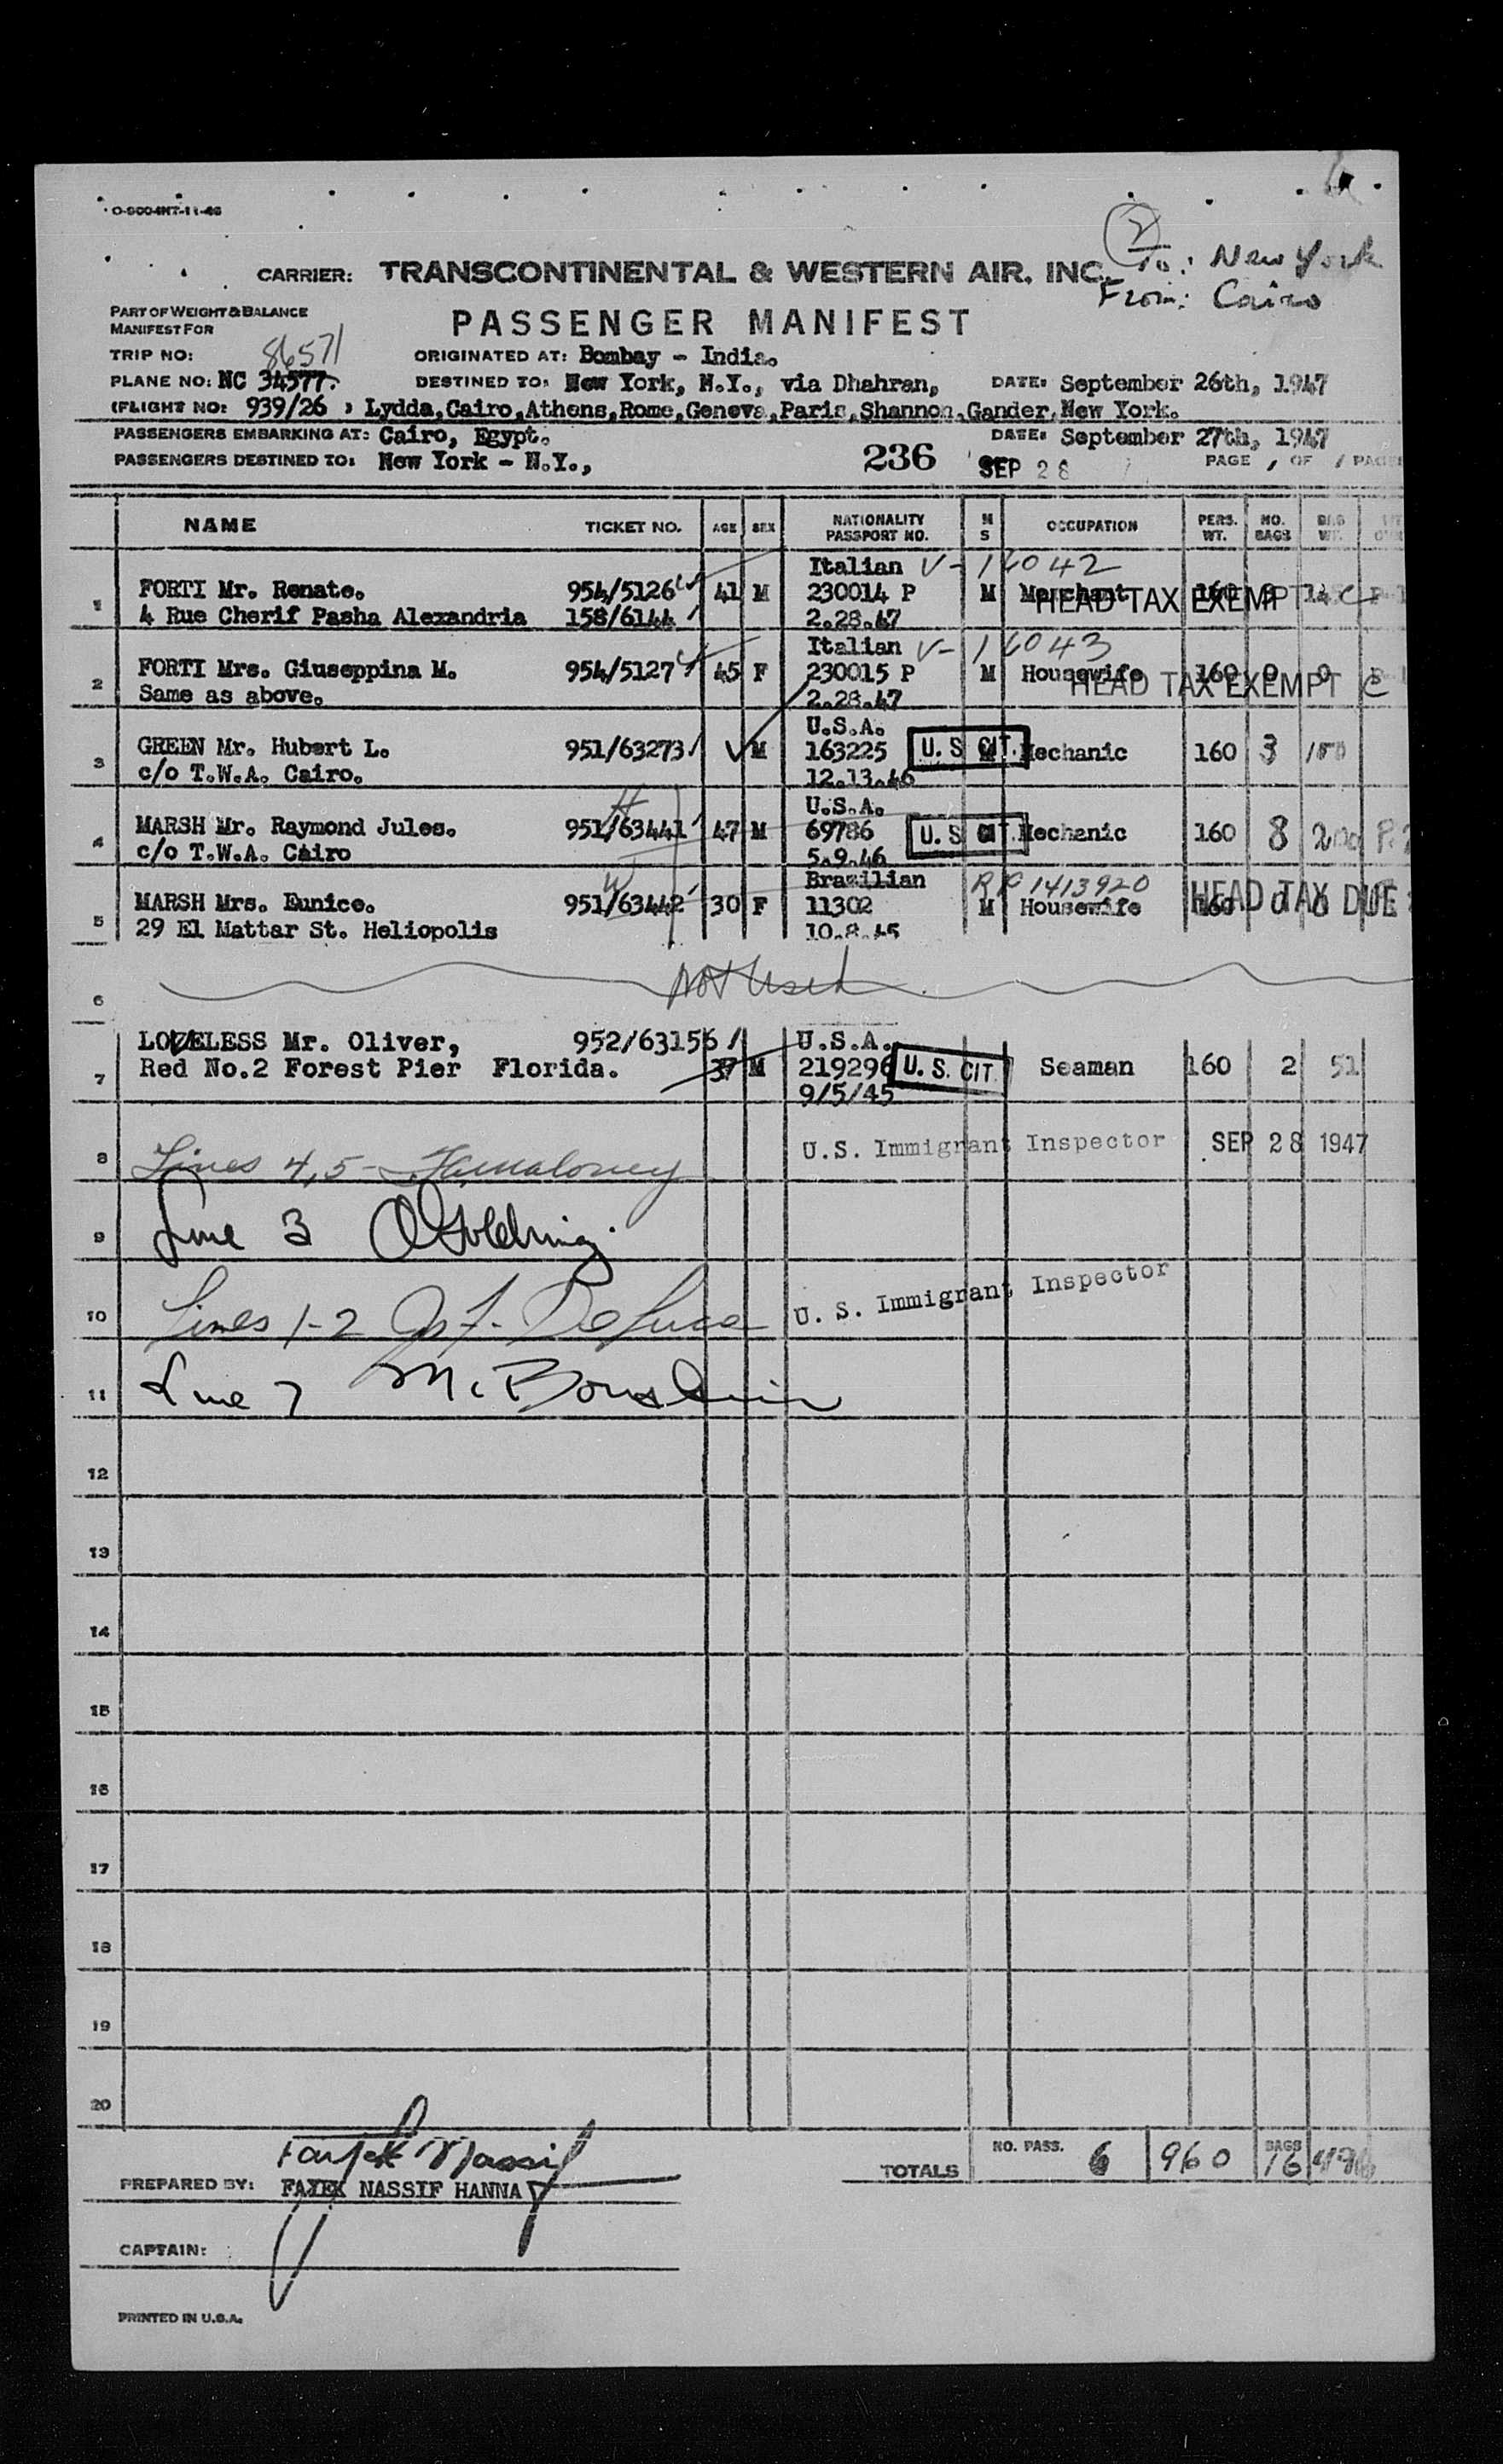 O-9004NT-11-46
(2)
To: New York
From: Cairo
CARRIER: TRANSCONTINENTAL & WESTERN AIR, INC.
PART OF WEIGHT & BALANCE
MANIFEST FOR
PASSENGER MANIFEST
TRIP NO: 86571 ORIGINATED AT: Bombay - India.
PLANE NO: NC 34577. DESTINED TO: New York, N.Y., via Dhahran, DATE: September 26th, 1947
(FLIGHT NO: 939/26 ) Lydda,Cairo,Athens,Rome,Geneva,Paris,Shannon,Gander,New York.
PASSENGERS EMBARKING AT: Cairo, Egypt. DATE: September 27th, 1947
PASSENGERS DESTINED TO: New York - N.Y., 236 SEP 28 PAGE 1 OF 1 PAGES
NAME TICKET NO. AGE SEX NATIONALITY PASSPORT NO. M S OCCUPATION PERS. WT. NO. BAGS BAG WT.
Italian V-16042
1 FORTI Mr. Renato. 954/5126 41 M 230014 P M Merchant 160
HEAD TAX EXEMPT C
4 Rue Cherif Pasha Alexandria 158/6144 2.28.47
Italian V-16043
2 FORTI Mrs. Giuseppina M. 954/5127 45 F 230015 P M Housewife 160 0 0
HEAD TAX EXEMPT C
Same as above. 2.28.47
U.S.A.
3 GREEN Mr. Hubert L. 951/63273 M 163225 U.S. CIT. M Mechanic 160 3 150
c/o T.W.A. Cairo. 12.13.46
H
U.S.A.
4 MARSH Mr. Raymond Jules. 951/63441 47 M 69786 U.S. CIT. M Mechanic 160 8 200
c/o T.W.A. Cairo 5.9.46
W
Brazilian RP 1413920
5 MARSH Mrs. Eunice. 951/63442 30 F 11302 M Housewife 160 0 0
HEAD TAX DUE
29 El Mattar St. Heliopolis 10.8.45
6 Not Used
LOVELESS Mr. Oliver, 952/63156 U.S.A.
7 Red No.2 Forest Pier Florida. 37 M 219296 U.S. CIT. Seaman 160 2 51
9/5/45
8 Lines 4,5 - Maloney U.S. Immigrant Inspector SEP 28 1947
9 Line 3 Goldring
10 Lines 1-2 DeLuca U. S. Immigrant Inspector
11 Line 7 M. Bornstein
12
13
14
15
16
17
18
19
20
TOTALS NO. PASS. 6 960 BAGS 16 496
Fayek Nassif
PREPARED BY: FAYEK NASSIF HANNA
CAPTAIN:
PRINTED IN U.S.A.